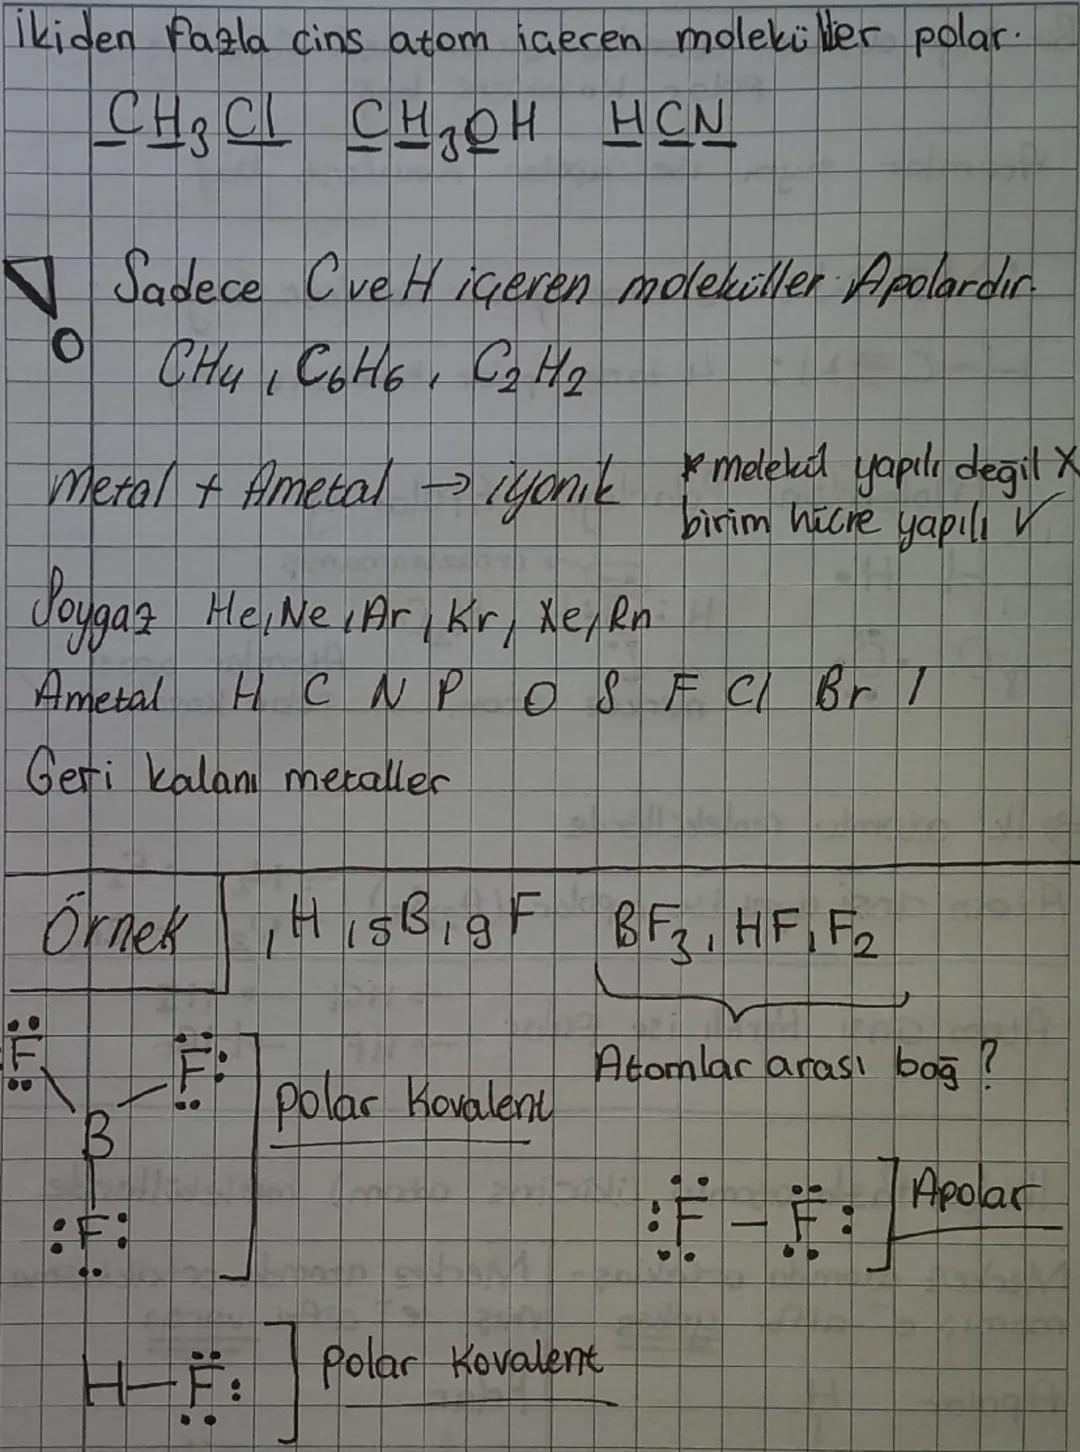 ikiden fazla cins atom içeren moleküller polar.
CH₃Cl CH₃OH HCN
Sadece C ve H içeren moleküller Apolardır.
CH₄, C₆H₆, C₂H₂
Metal + Ametal → iyonik
* molekül yapılı değil X
birim hücre yapılı ✓
Soygaz He, Ne, Ar, Kr, Xe, Rn
Ametal H C N P O S F Cl Br I
Geri kalanı metaller
Örnek ₁H, ₅B, ₉F BF₃, HF, F₂
Atomlar arası bağ?
F F
B
F
Polar Kovalent
F – F
Apolar
H – F
Polar Kovalent